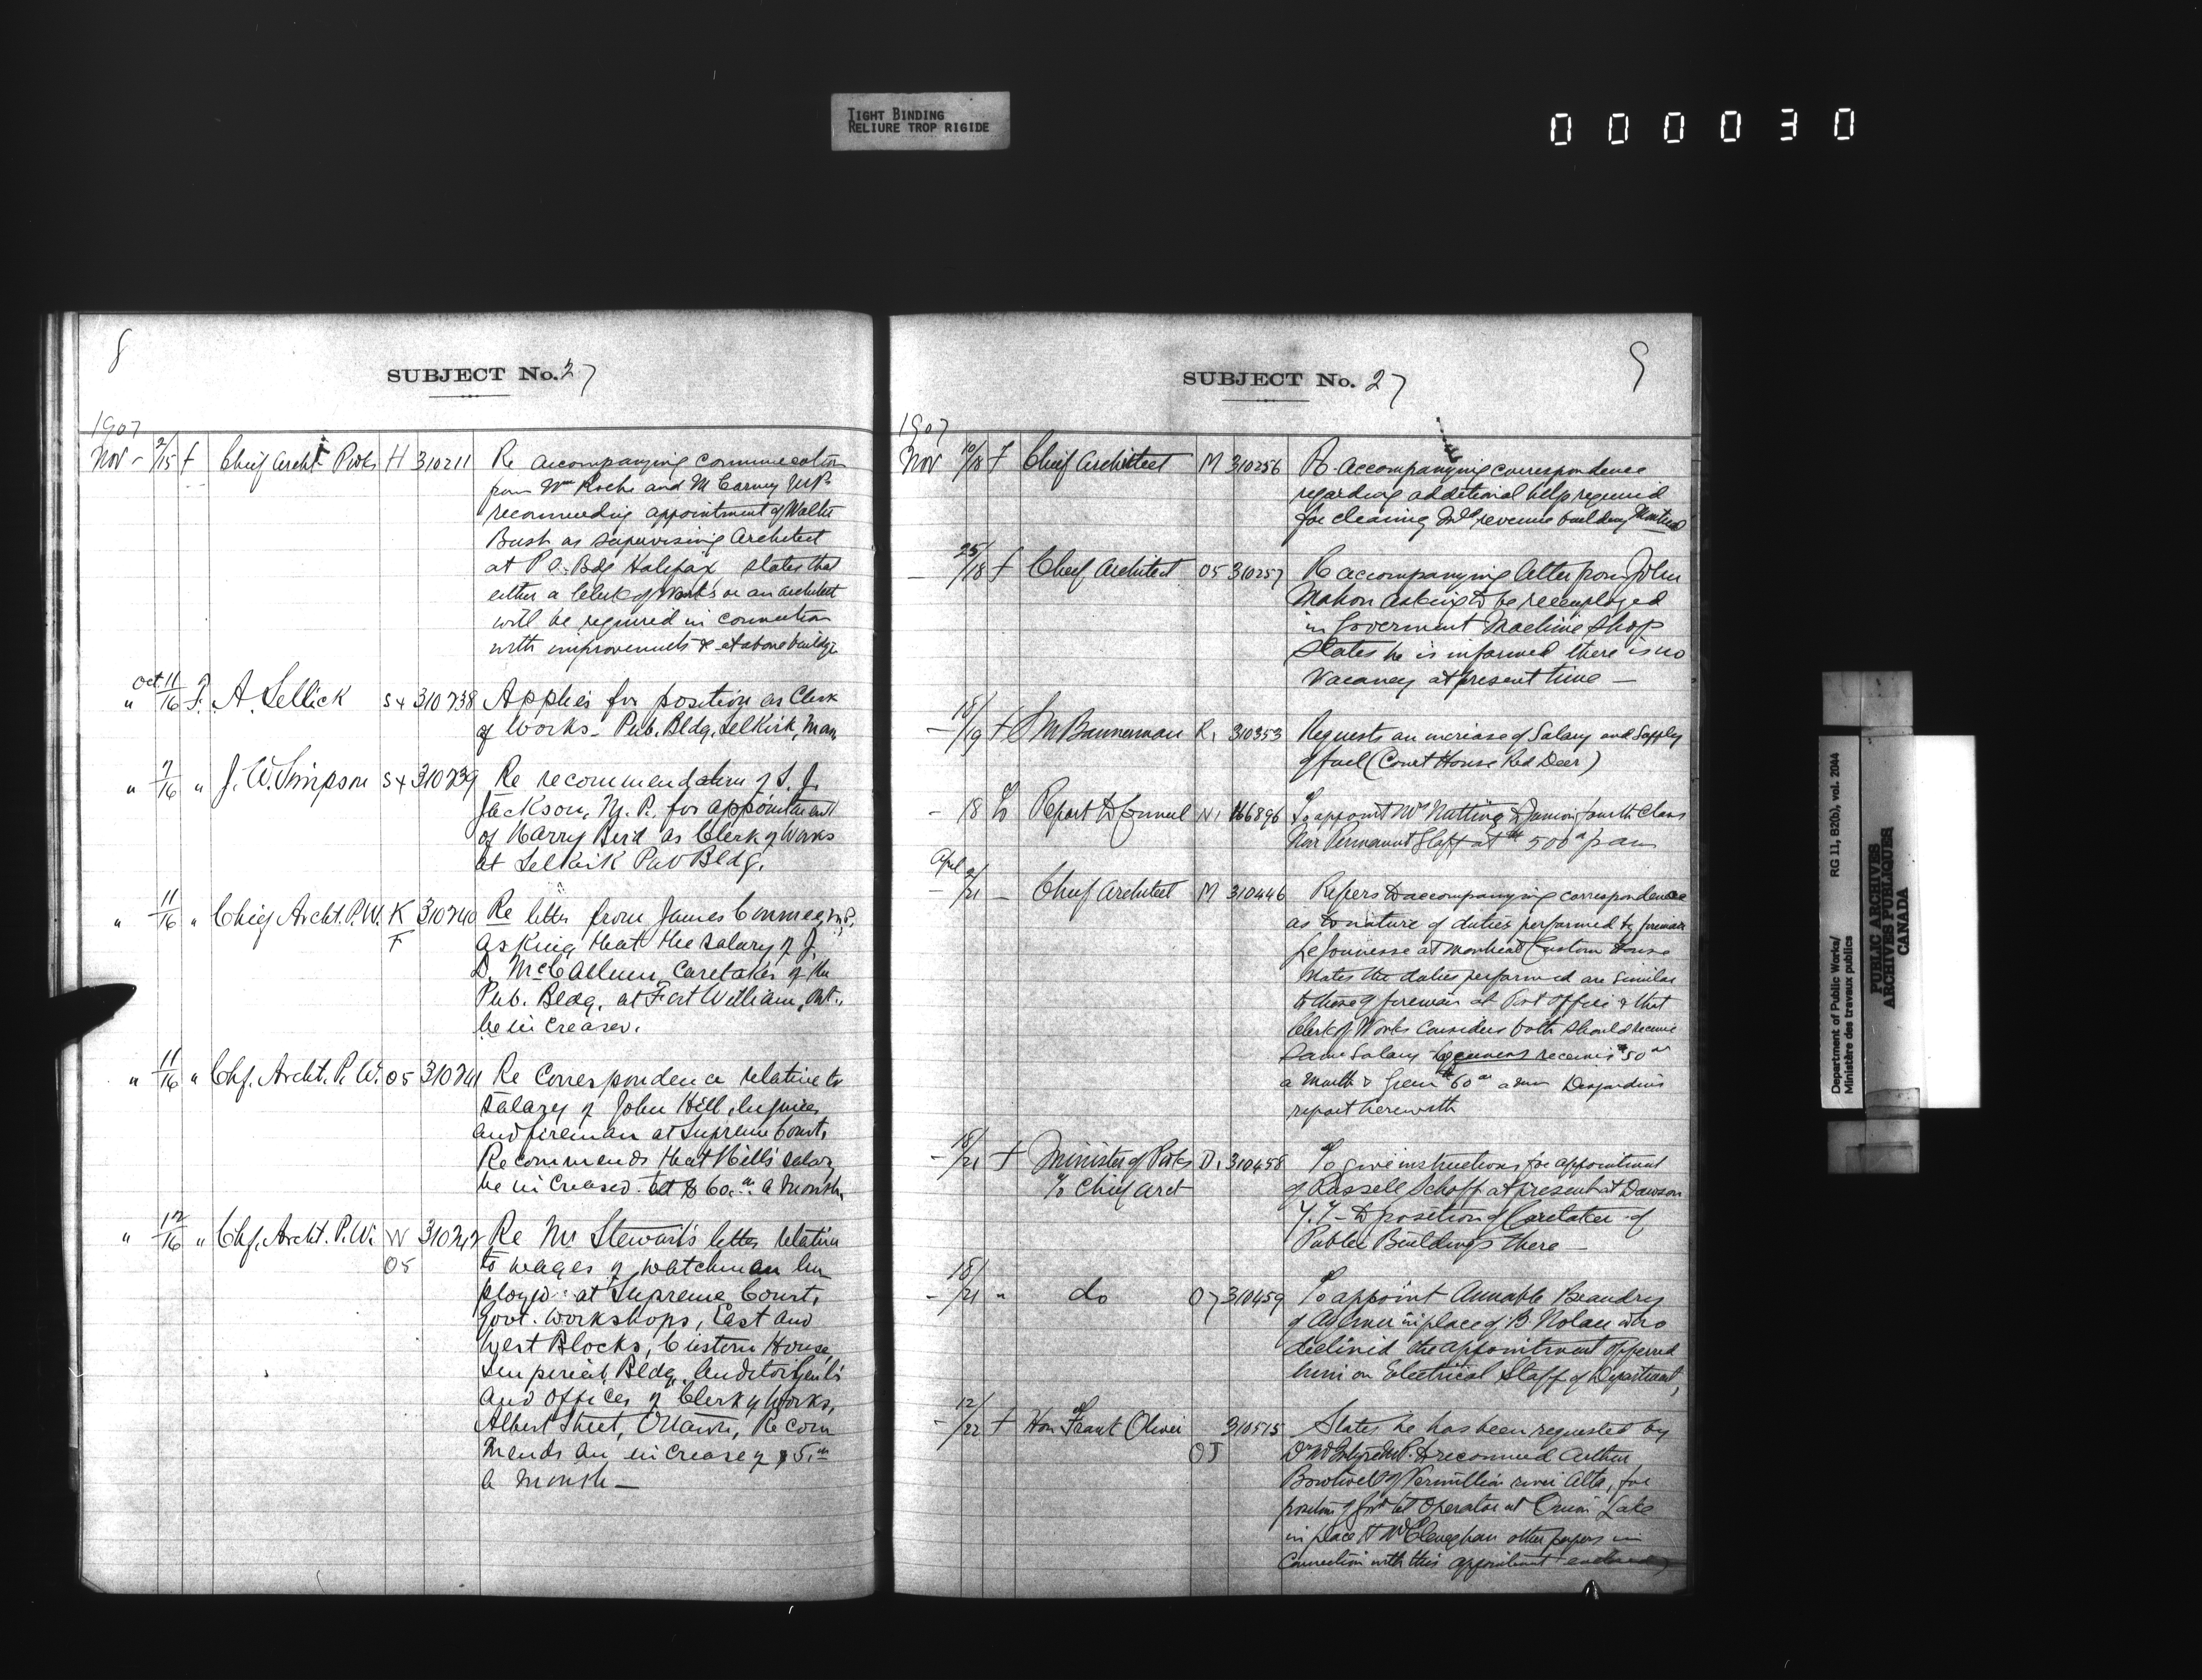 TIGHT BINDING
RELIURE TROP RIGIDE
000030
8
SUBJECT No. 27
1907
Nov - 2/15 f Chief Archt P Wks H 310211 Re accompanying communication
from Wm Roche and M Carney MPs
recommending appointment of Walter
Bush as supervising Architect
at P.O. Bdg Halifax states that
either a Clerk of Works or an architect
will be required in connection
with improvements & at above buildg.
" Oct. 11/16 f. A. Sellick S4 310238 Applies for position as Clerk
of Works - Pub. Bldg, Selkirk, Man.
" 7/16 " J. W. Simpson S4 310239 Re recommendation of S. J.
Jackson, M. P., for appointment
of Harry Bird as Clerk of Works
at Selkirk Pub Bldg.
" 11/16 " Chief Archt. P. W. K 310240 Re letter from James Conmee, M.P.,
F asking that the salary of J.
D. McCallum, Caretaker of the
Pub. Bldg. at Fort William, Ont.,
be increased.
" 11/16 " Chf. Archt. P. W. O5 310241 Re Correspondence relative to
salary of John Hill, Engineer
and fireman at Supreme Court.
Recommends that Hill's salary
be increased to $60.00 a month.
" 12/16 " Chf. Archt. P. W. W 310242 Re Mr Stewart's letter relative
O5 to wages of watchman em
ployed at Supreme Court,
Govt. Workshops, East and
West Blocks, Custom House,
Imperial Bldg, Auditor Genl's
and Offices of Clerk of Works,
Albert Street, Ottawa, Recom
mends an increase of $5.00
a month -
9
SUBJECT No. 27
1907
Nov 10/18 f Chief Architect M 310256 Re accompanying correspondence
regarding additional help required
for cleaning Inld revenue building Montreal
- 25/18 f Chief Architect O5 310257 Re accompanying letter from John
Mahon asking to be reemployed
in Goverment Machine Shop
States he is informed there is no
vacancy at present time -
- 15/19 f M Bannerman R1 310353 Requests an increase of Salary and supply
of fuel (Court House Red Deer)
- 18 Report to Council N1 166896 To appoint Mr Nutting to Junior fourth Class
Non Permanent Staff at $500 p an
April
- 2/21 - Chief Architect M 310446 Refers to accompanying correspondence
as to nature of duties performed by fireman
LeJeunesse at Montreal Custom House
states the duties performed are similar
to those of fireman at Post Office & that
Clerk of Works considers both should receive
same salary receives $50 00
a month & $60 00 Desjardins
report herewith
- 18/21 f Minister of P Wks D1 310458 To give instructions for appointment
% Chief Arct of Russell Schoff at present at Dawson
Y.T. to position of Caretaker of
Public Buildings there -
- 18/21 " do O7 310459 To appoint Amable Beaudry
of Aylmer in place of B. Nolan who
declined the appointment offered
him on Electrical Staff of Department,
- 12/22 f Hon Frank Oliver 310515 States he has been requested by
OJ Dr McIntyre M.P. to recommend Arthur
of Vermillion river Alta, for
position of Govt tel Operator at Onion Lake
in place other papers in
connection with this appointment enclosed
Department of Public Works/ RG 11, B2(b), vol. 2044
Ministère des travaux publics
PUBLIC ARCHIVES
ARCHIVES PUBLIQUES
CANADA